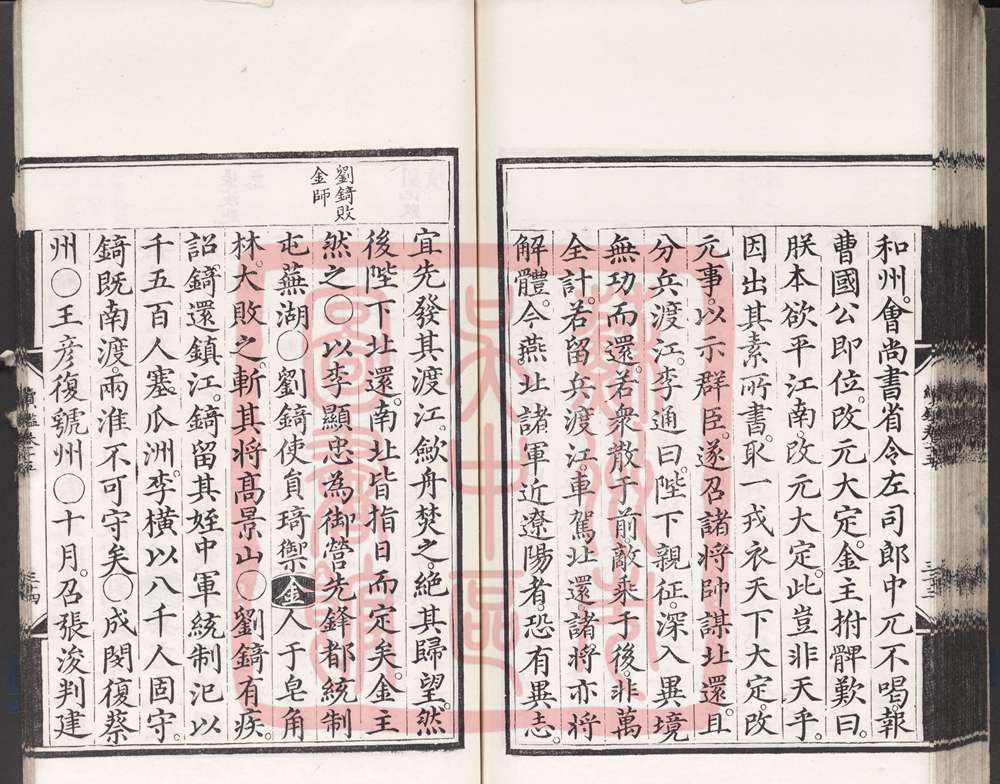 和州。會尚書省令左司郎中兀不喝。報
曹國公即位。改元大定。金主拊髀歎曰。
朕本欲平江南。改元大定。此豈非天乎。
因出其素所書。取一戎衣天下大定。改
元事。以示群臣。遂召諸將帥謀北還。且
分兵渡江。李通曰。陛下親征。深入異境
無功而還。若衆散于前敵乘于後。非萬
全計。若留兵渡江。車駕北還。諸將亦將
解體。今燕北諸軍近遼陽者。恐有異志。
宜先發其渡江。歛舟焚之。絕其歸望。然
後陛下北還。南北皆指日而定矣。金主
然之〇以李顯忠為御營先鋒都統制
屯蕪湖〇劉錡使員琦禦金人于皂角
林。大敗之。斬其将髙景山〇劉錡有疾。
詔錡還鎮江。錡留其姪中軍統制汜以
千五百人塞瓜洲。李橫以八千人固守。
錡既南渡。兩淮不可守矣〇成閔復蔡
州〇王彥復虢州〇十月。召張浚判建
劉錡敗
金師